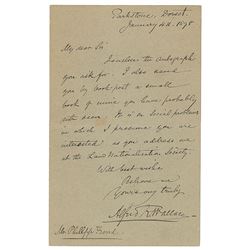 Parkstone, Dorset.
January 4th. 1898
My dear Sir
I enclose the Autograph
you ask for. I also send
you by book post a small
book of mine you have probably
not seen. It is on Social problems
in which I presume you are
interested as you address me
at the Land Nationalisation Society.
With best wishes
Believe me
Yours very truly
Alfred R. Wallace
Mr. Phillipp Bend